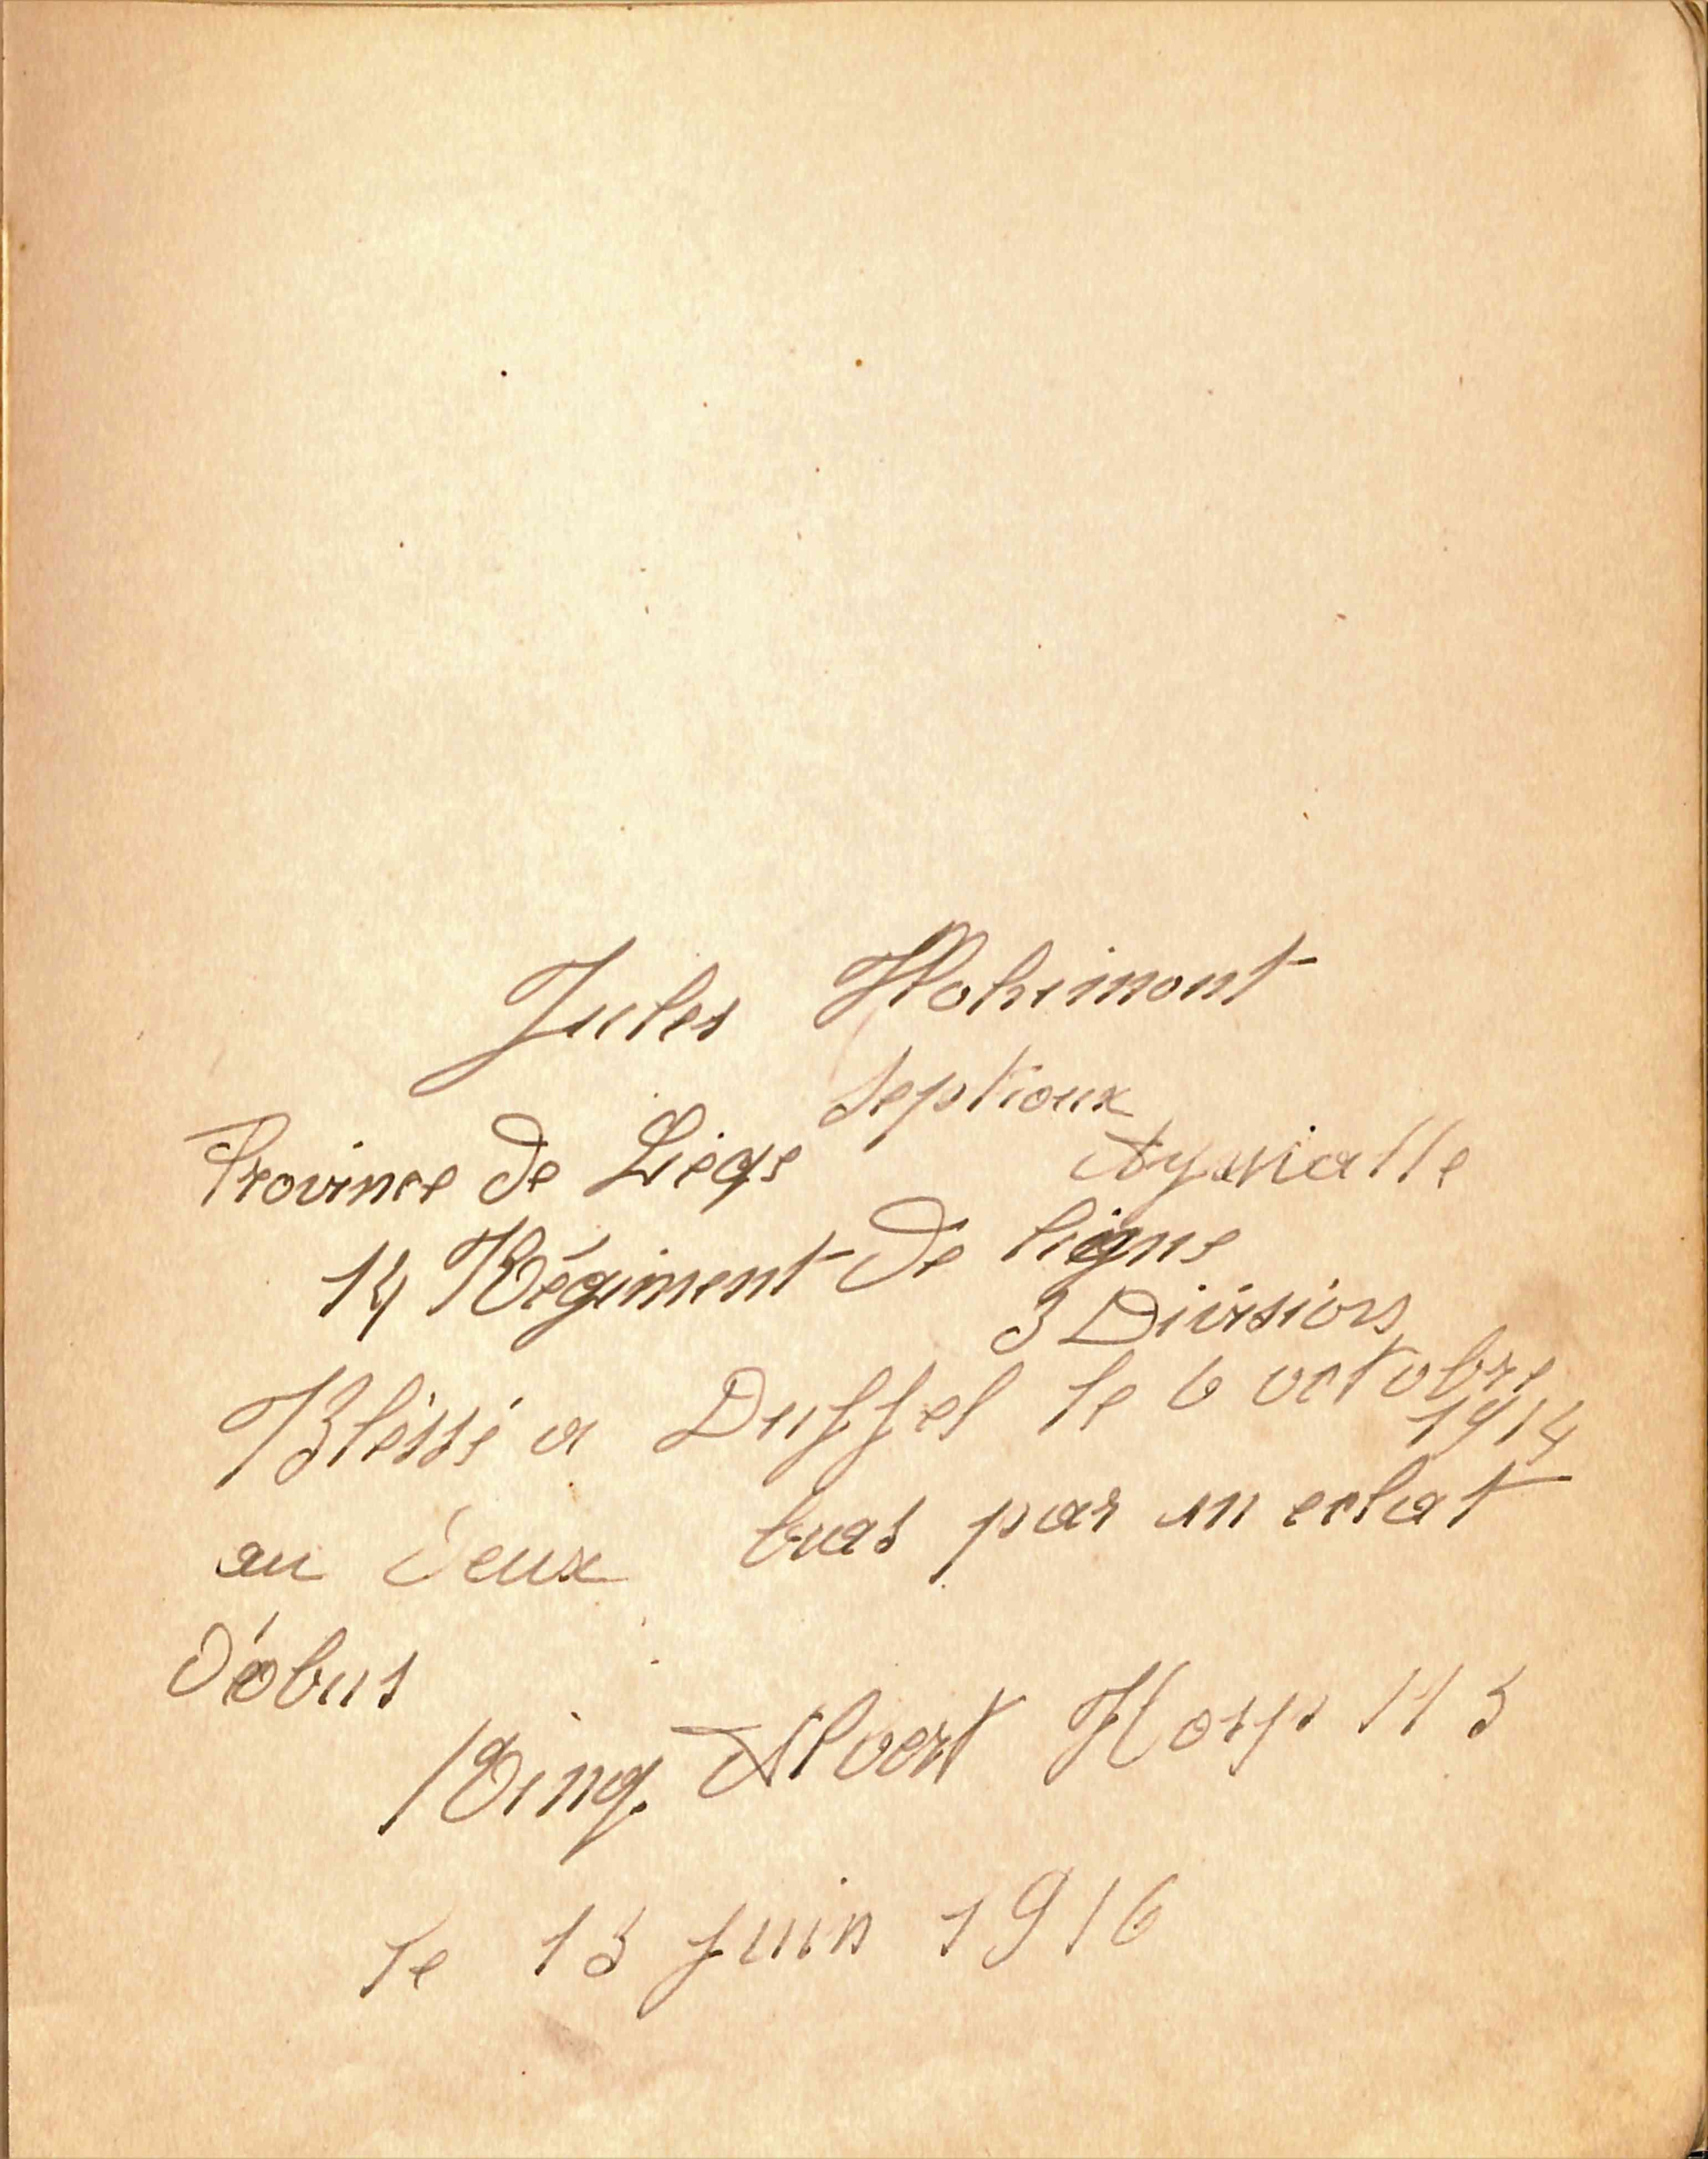 Jules Hohimont
Septroux
Province de Liège Aywaille
14 Régiment de ligne
3 Division
Blessé a Duffel le 6 octobre
1914
au deux bras par un eclat
d'obus
King Albert Hosp
le 13 Juin 1916